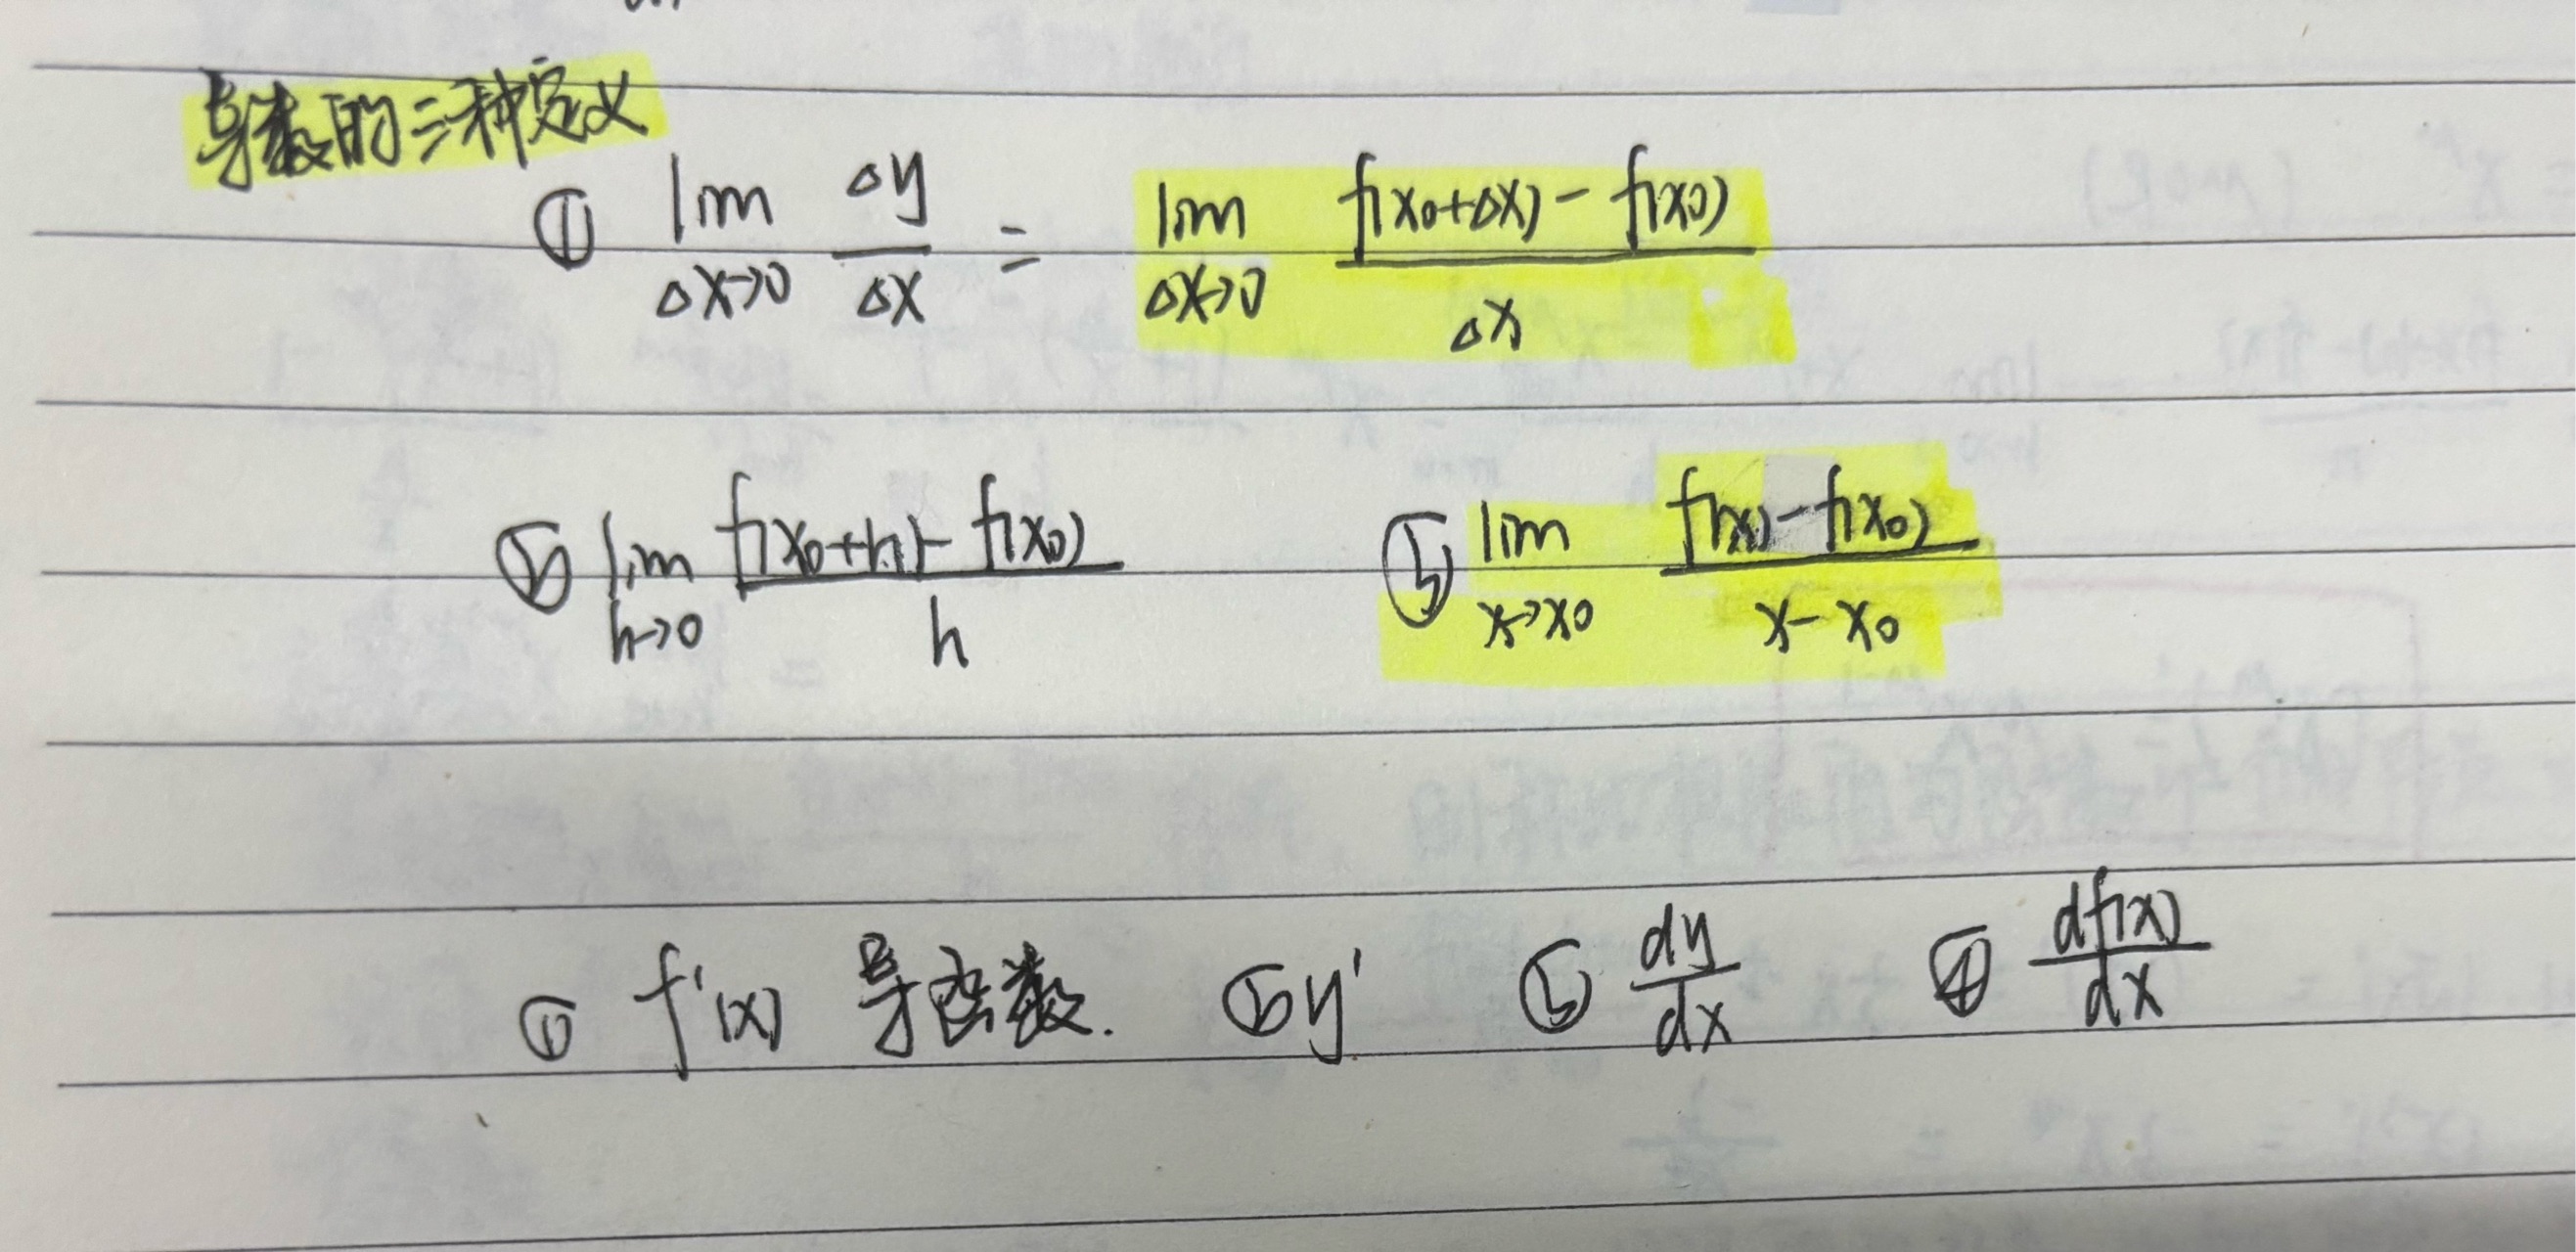 导数的三种定义
① lim Δx→0 Δy/Δx = lim Δx→0 (f(x0+Δx) - f(x0))/Δx
② lim h→0 (f(x0+h) - f(x0))/h ③ lim x→x0 (f(x) - f(x0))/(x - x0)
① f'(x) 导函数. ② y' ③ dy/dx ④ df(x)/dx